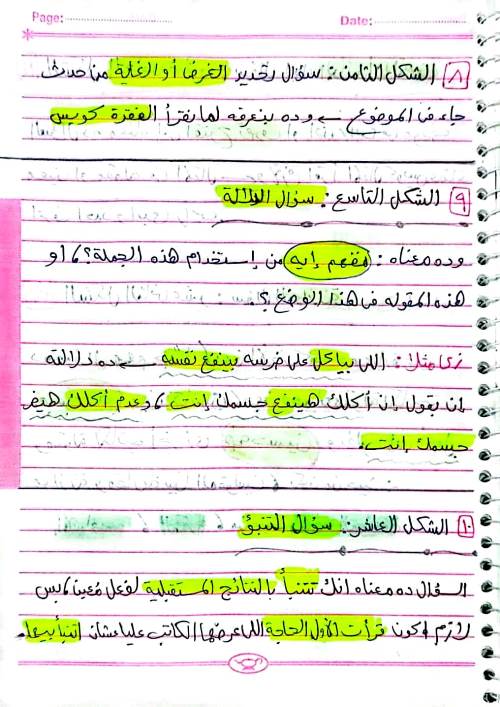 Page: Date:
٨ الشكل الثامن: سؤال تحديد الغرض أو الغاية من حدث
جاء فى الموضوع ← وده بنعرفه لما نقرأ الفقرة كويس
٩ الشكل التاسع: سؤال الدلالة
وده معناه: نفهم إيه من إستخدام هذه الجملة؟، أو
هذه المقوله فى هذا الوضع؟.
زى مثلا: اللى بياكل على ضرسه بينفع نفسه ← ده دلالته
بأن يقول إن أكلك هينفع جسمك إنت، وعدم أكلك هيضر
جسمك إنت.
١٠ الشكل العاشر: سؤال التنبؤ
السؤال ده معناه انك تتنبأ بالنتائج المستقبلية لفعل مُعين، بس
لازم أكون قرأت الأول الحاجة اللى عرضها الكاتب عليا عشان اتنبأ بيها.